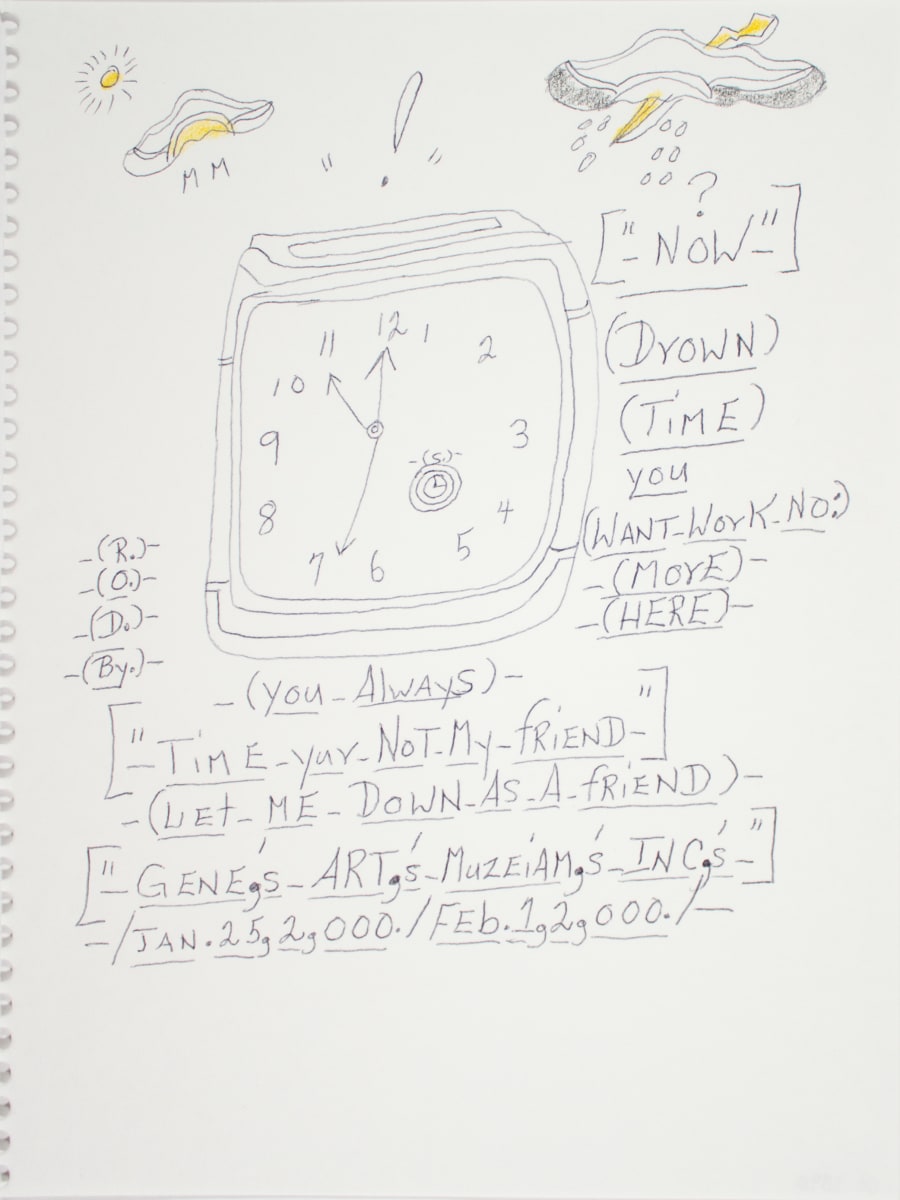 M M
" ! "
?
["-NOW-"]
(DrOWN)
(TiME)
you
(WANT-WorK-NO:)
-(MOrE)-
-(HERE)-
11 12 1
10 2
9 3
-(S.)-
8 4
7 6 5
-(R.)-
-(O.)-
-(D.)-
-(By.)-
-(you-AlwAyS)-
["-TiME-yur-NoT-My-friEND-"]
-(LEt-ME-DOWN-AS-A-friEND)-
["-GENE,'s-ART,'s-MUZEiAM,'s-INC,'s-"]
-/JAN.25,2,000./FEb.1,2,000./-